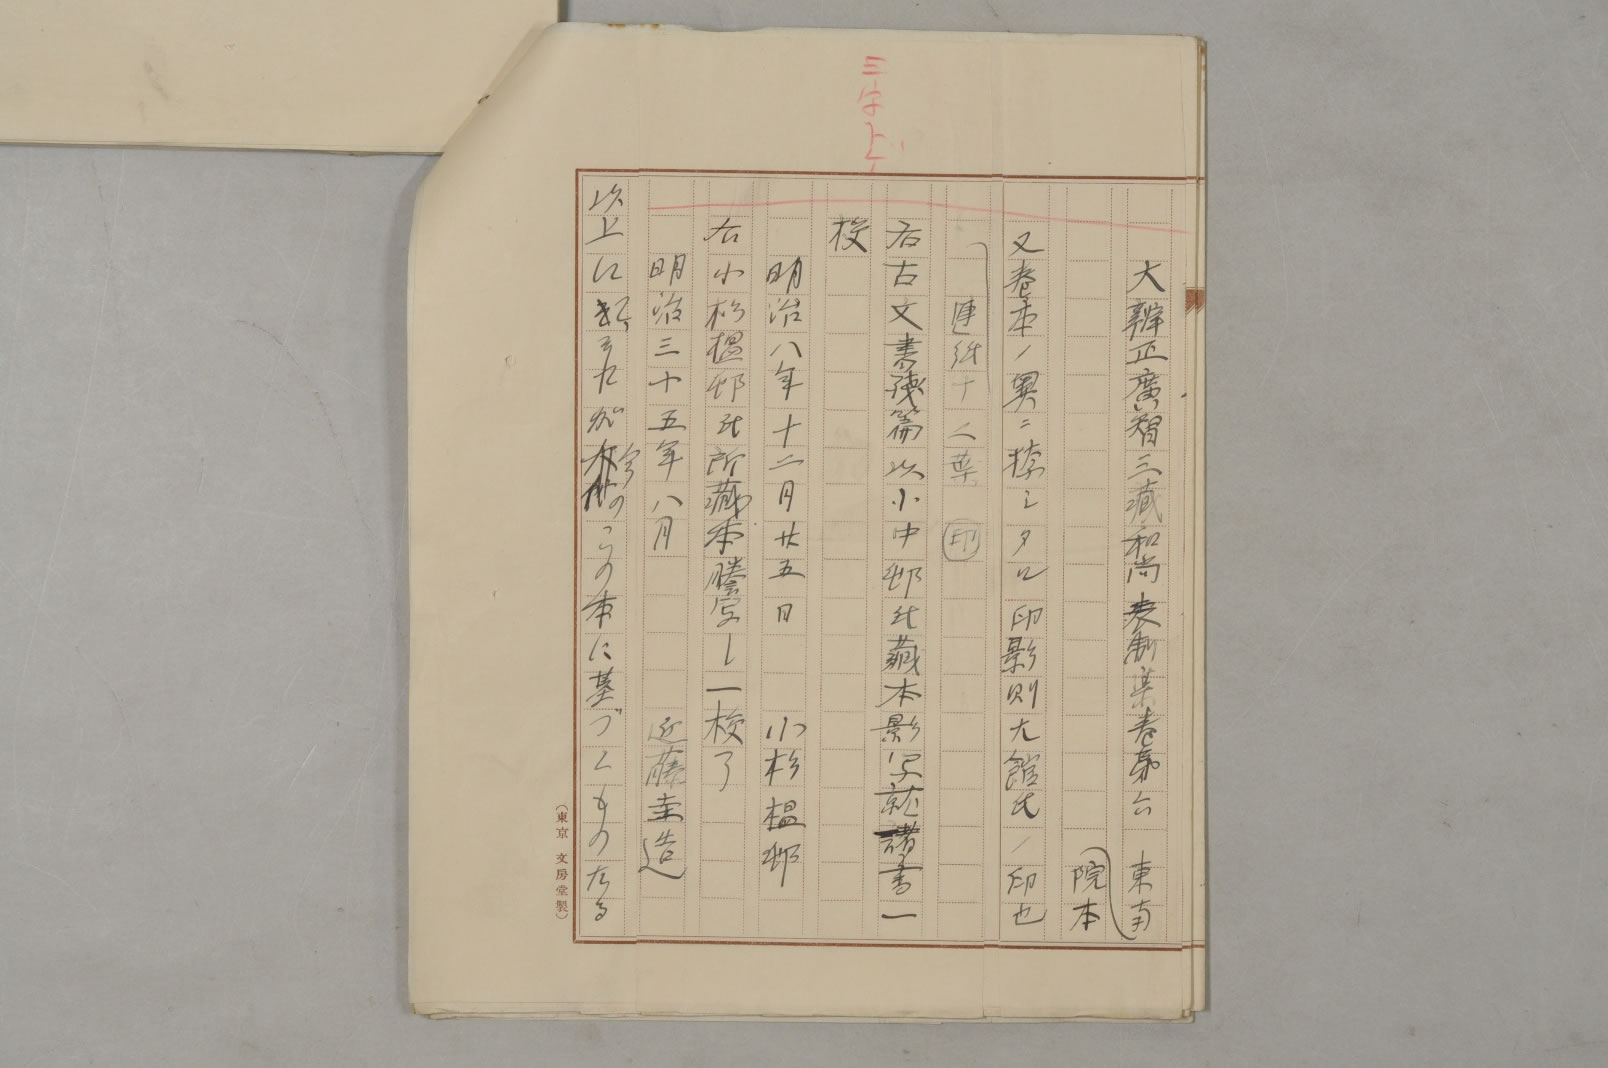 三字上ゲ
大辨正廣智三藏和尚表制集卷第六 東南
院本
又卷本ノ奥ニ捺シタル印影則大館氏ノ印也
連紙十八葉 印
右古文書残篇以小中邨氏藏本影写就諸書一
校
明治八年十二月廿五日 小杉榲邨
右小杉榲邨氏所藏本謄写し一校了
明治三十五年八月 近藤圭造
以上に
の
この本に基づくものたる
(東京 文房堂製)